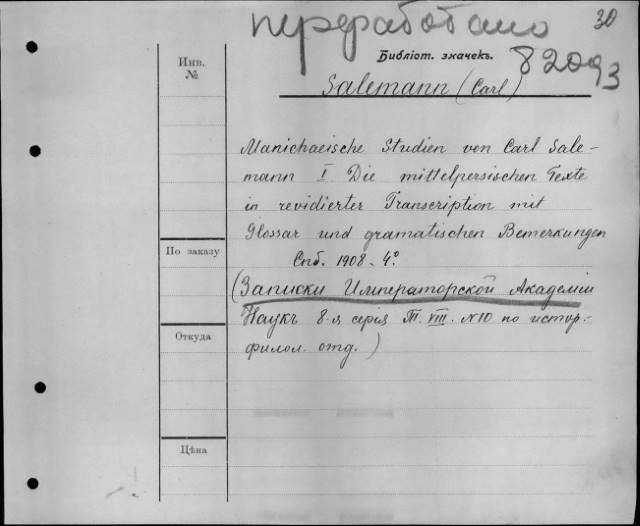 переработано
30
Инв.
№
Библіот. значекъ.
82093
Salemann (Carl)
Manichaeische Studien von Carl Sale-
mann I. Die mittelpersischen Texte
in revidierter Transcription mit
Glossar und gramatischen Bemerkungen
Спб. 1908. 4º
(Записки Императорской Академіи
Наукъ 8-я серія Т. VIII. №10. по истор.-
филол. отд.)
По заказу
Откуда
Цѣна